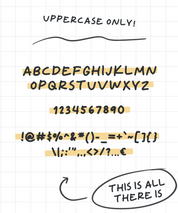 UPPERCASE ONLY!
ABCDEFGHIJKLMN
OPQRSTUVWXYZ
1234567890
!@#$%^&*()-_=+`~[]{}
\|;:'",.<>/?...€
THIS IS ALL
THERE IS